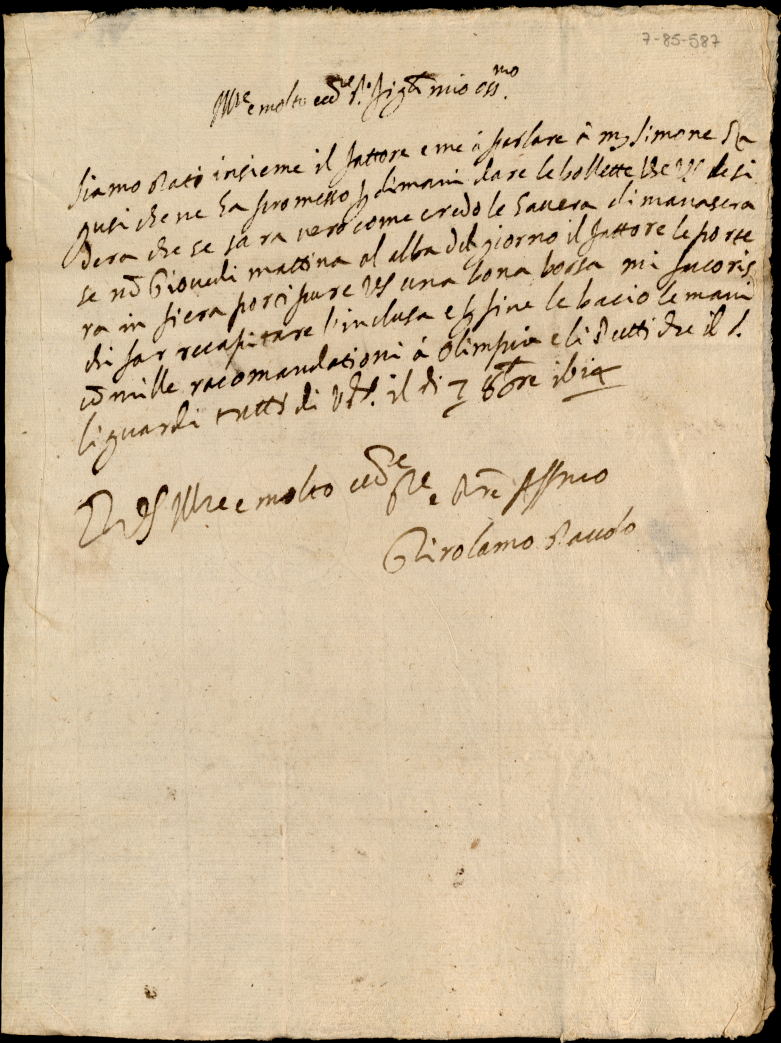 7-85-587
Ill.re e molto ecc.te S.r Sig.r mio oss.mo
siamo stati insieme il fattore e me à parlare à ms simone Ra
gusi che ne ha promesso p dimani dare le bollette che VS desi
dera che se sara vero come credo le havera dimanasera
se nõ Giovedi mattina al alba del giorno il fattore le porte
ra in fiera porti pure VS una bona borsa mi favoris
chi far recapitare l'inclusa e p fine le bacio le mani
cõ mille racomandationi á Olimpia e li Putti che il S.
li guardi tutti di V.S. il di 7 8bre 1614
Di VS Ill.re e molto ecc.te
Ser.re Aff.mo
Girolamo